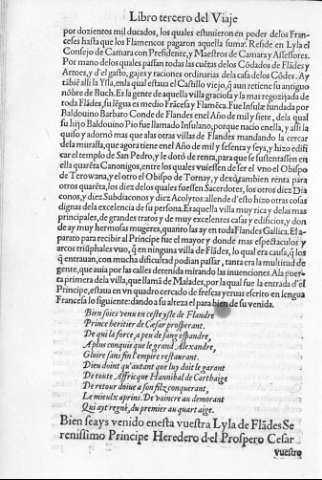 Libro tercero del Viaje
por dozientos mil ducados, los quales estuuieron en poder delos Fran-
ceses hasta que los Flamencos pagaron aquella suma. Reside en Lyla el
Consejo de Camara con Presidente, y Maestros de Camara y Assessores.
Por mano delos quales passan todas las cuẽtas delos Cõdados de Flãdes y
Artoes, y d'el gasto, gajes y raciones ordinarias dela casa delos Cõdes. Ay
tãbiẽ alli la Ysla, enla qual estaua el Castillo viejo, q̃ aun retiene su antiguo
nõbre de Buch. Es la gente de aquella villa graciosa y la mas regozijada de
toda Flãdes, su lẽgua es medio Frãcesa y Flamẽca. Fue Insulæ fundada por
Baldouino Barbato Conde de Flandes enel Año de mil y siete, dela qual
su hijo Baldouino Pio fue llamado Insulano, porque nacio enella, y assi la
quiso y adornó mas que alas otras villas de Flandes mandando la cercar
dela muralla, que agora tiene enel Año de mil y sesenta y seys, y hizo edifi
car el templo de San Pedro, y le dotó de renta, para que se sustentassen en
ella quarẽta Canonigos, entre los quales vuiessen de ser el vno el Obispo
de Terowana, y el otro el Obispo de Tornay, y dexó tambien renta para
otros quarẽta, los diez delos quales fuessen Sacerdotes, los otros diez Dia
conos, y diez Subdiaconos y diez Acolytos allende d'esto hizo otras cosas
dignas dela excelencia de su persona. Es aquella villa muy rica y delas mas
principales, de grandes tratos y de muy excelentes casas y edificios, y don
de ay muy hermosas mugeres, quanto las ay en toda Flandes Gallica. El a-
parato para recibir al Principe fue el mayor y donde mas espectaculos y
arcos triũphales vuo, q̃ en ninguna villa de Flãdes, lo qual era causa, q̃ los
q̃ entrauan, con mucha dificultad podian passar, tanta era la multitud de
gente, que auia por las calles detenida mirando las inuenciones. Ala puer-
ta primera dela villa, que llamã de Malades, por la qual fue la entrada d'el
Principe, estaua en vn quadro cercado de frescas yeruas escrito en lengua
Francesa lo siguiente: dando a su alteza el para bien de su venida.
Bien soiez venu en ceste ysle de Flandre
Prince heritier de Cæsar prosperant.
De qui la force, a peu de sang espandre,
A plus conquis que le grand Alexandre,
Gloire sans fin l'empire restaurant.
Dieu doint qu'autant que luy doit le garant
De toute Affricque Hannibal de Carthaige
De retour doiue a son filz conquerant,
Le mieulx aprins. De vaincre au demorant
Qui ayt regné, du premier au quart aige.
Bien seays venido enesta vuestra Lyla de Flãdes Se
renissimo Principe Heredero d'el Prospero Cesar
vuestro